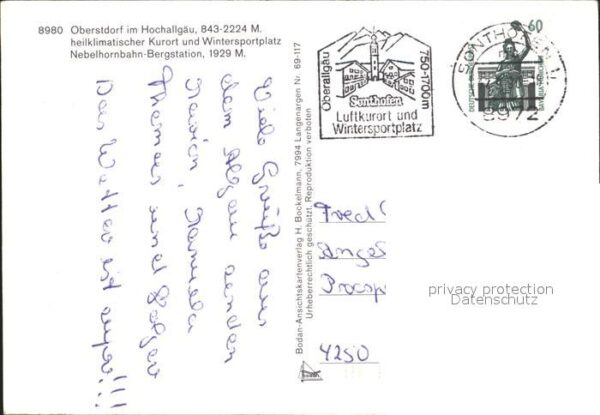 8980 Oberstdorf im Hochallgäu, 843-2224 M.
heilklimatischer Kurort und Wintersportplatz
Nebelhornbahn-Bergstation, 1929 M.
Viele Grüße aus
dem Allgäu senden
Marion, Manuela
Thomas und Holger
Das Wetter ist super!!!
Bodan-Ansichtskartenverlag H. Bockelmann, 7994 Langenargen Nr. 69-117
Urheberrechtlich geschützt. Reproduktion verboten
Oberallgäu
750-1700m
Sonthofen
Luftkurort und
Wintersportplatz
SONTHOFEN
8972
60
Fred
Angel
Prosp
4250
privacy protection
Datenschutz